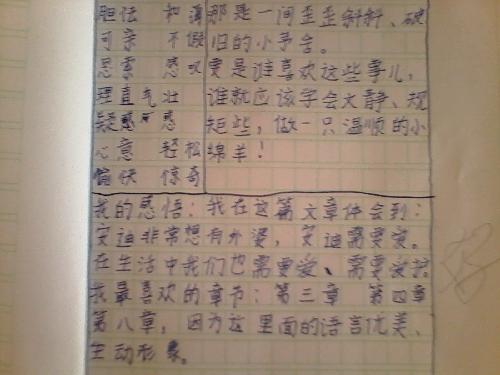 胆怯 和蔼
可亲 不假
思索 感叹
理直气壮
疑惑 感
心意 轻松
愉快 惊奇
那是一间歪歪斜斜、破
旧的小矛舍。
要是谁喜欢这些事儿,
谁就应该学会文静、规
矩些,做一只温顺的小
绵羊!
我的感悟:我在这篇文章体会到:
安迪非常想有外婆,安迪需要爱。
在生活中我们也需要爱、需要爱护。
我最喜欢的章节:第三章 第四章
第八章,因为这里面的语言优美、
生动形象。